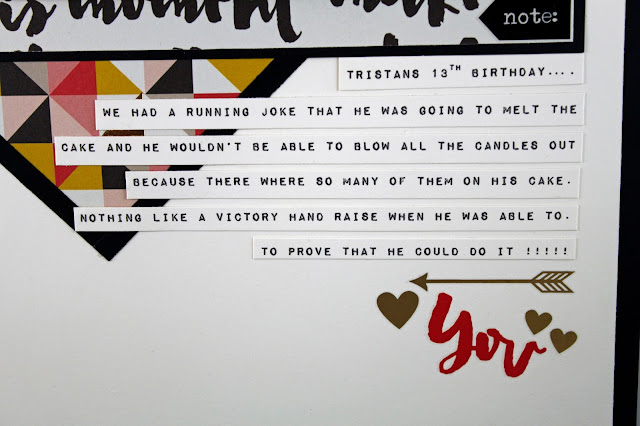 is moment
note:
TRISTANS 13TH BIRTHDAY....
WE HAD A RUNNING JOKE THAT HE WAS GOING TO MELT THE
CAKE AND HE WOULDN'T BE ABLE TO BLOW ALL THE CANDLES OUT
BECAUSE THERE WHERE SO MANY OF THEM ON HIS CAKE.
NOTHING LIKE A VICTORY HAND RAISE WHEN HE WAS ABLE TO.
TO PROVE THAT HE COULD DO IT !!!!!
You